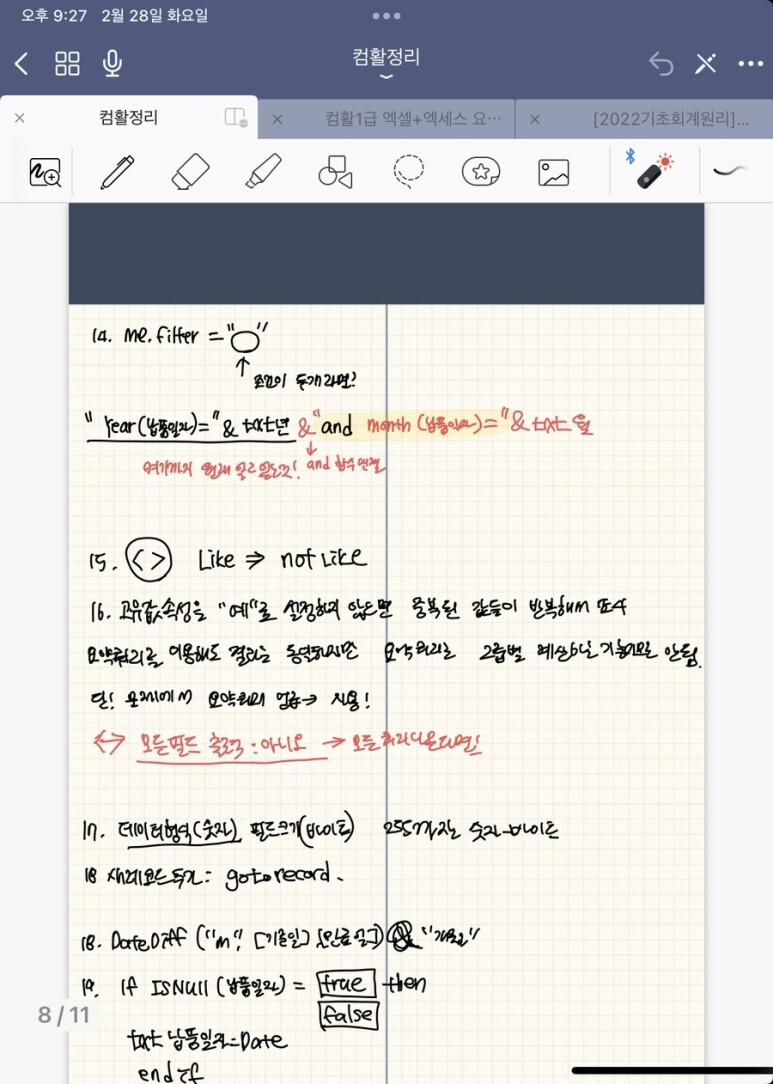 오후 9:27 2월 28일 화요일
컴활정리
컴활정리
컴활1급 엑셀+엑세스 요…
[2022기초회계원리]...
14. me.filter = " "
조건이 두개라면?
" Year(납품일자)=" & txt년 &" and month (납품일자)=" & txt월
여기까지 원래 알고있는것! and 함수연결
15. <> Like ⇒ not Like
16. 고유값속성을 "예"로 설정하지 않으면 중복된 값들이 반복해서 표시
요약쿼리를 이용해도 결과는 동일하지만 요약쿼리는 그룹별 계산하는 기능이므로 안됨.
단! 문제에서 요약쿼리 언급→ 사용!
↔ 모든필드 출력:아니오 → 모든처리다운되면!
17. 데이터형식(숫자) 필드크기(바이트) 255까지는 숫자-바이트
18 새레코드추가= gotorecord.
18. DateDiff ("m", [기준일] [만료일]) & "개월"
19. If ISNull (납품일자) = true then
false
txt납품일자=Date
end if
8/11